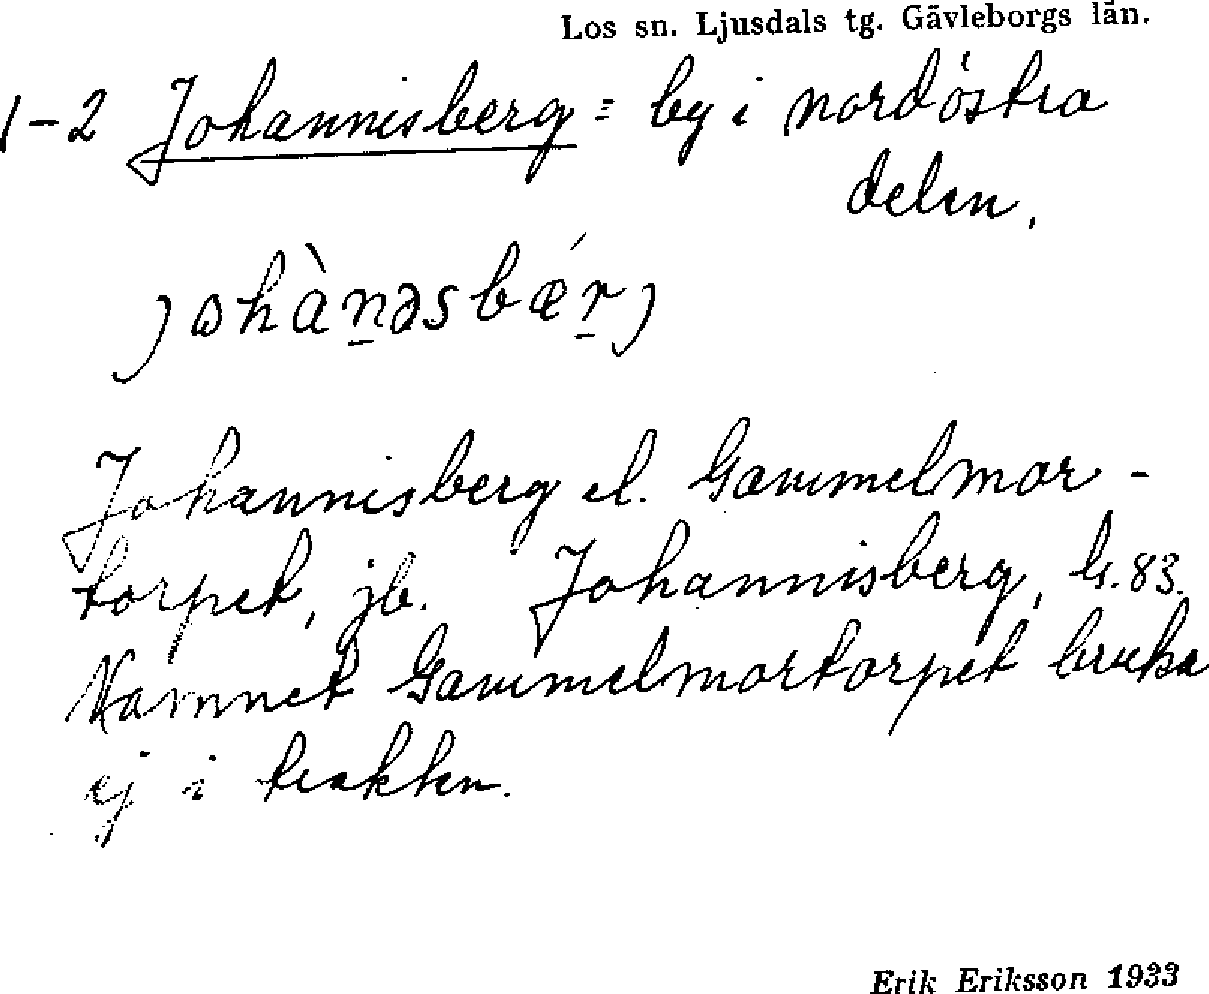 Los sn. Ljusdals tg. Gävleborgs län.
1-2 Johannisberg = by i nordöstra
delen.
johàn̲əsbǽr̲j
Johannisberg el. Gammelmor-
torpet, jb. Johannisberg, G. 83.
Namnet Gammelmortorpet bruka
ej i trakten.
Erik Eriksson 1933